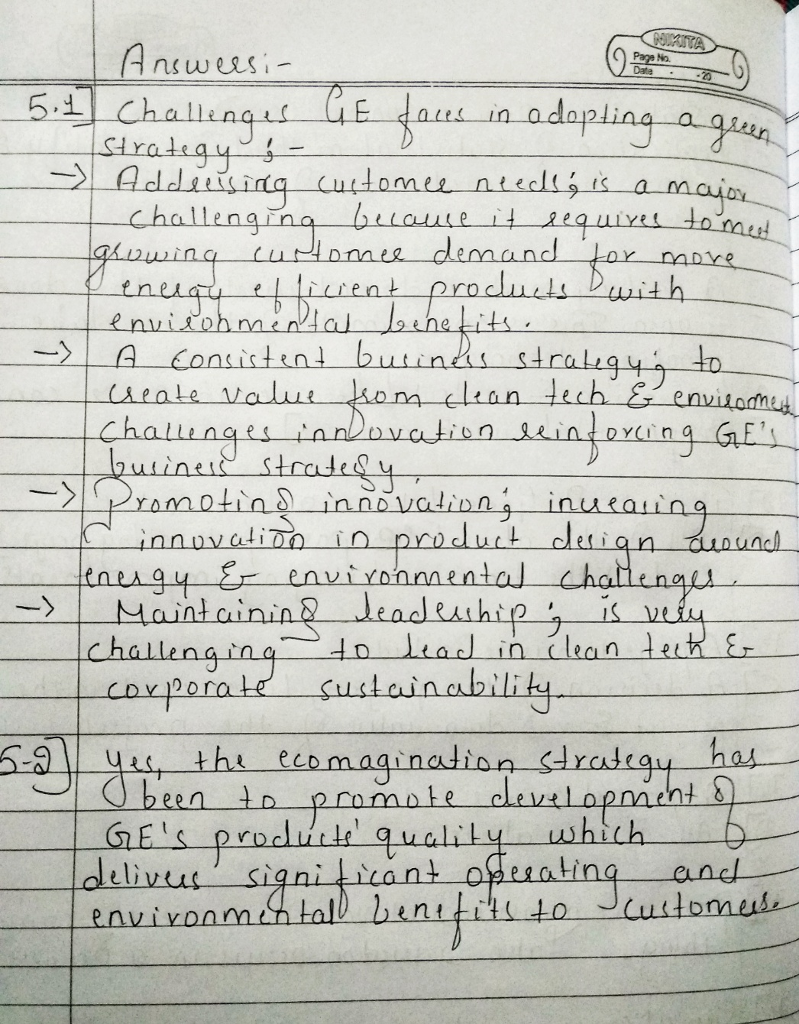 NIKITA
Page No.
Date . . 20
Answers:-
5.1] Challenges GE faces in adopting a green
strategy ; -
-> Addressing customer needs; is a major
challenging because it requires to meet
growing customer demand for more
energy efficient products with
environmental benefits.
-> A consistent business strategy; to
create value from clean tech & enviroment
challenges innovation reinforcing GE's
business strategy.
-> Promoting innovation; increasing
innovation in product design around
energy & environmental challenges.
-> Maintaining leadership; is very
challenging to lead in clean tech &
corporate sustainability.
5-2] Yes, the ecomagination strategy has
been to promote development of
GE's products' quality which
delivers significant operating and
environmental benefits to customers.